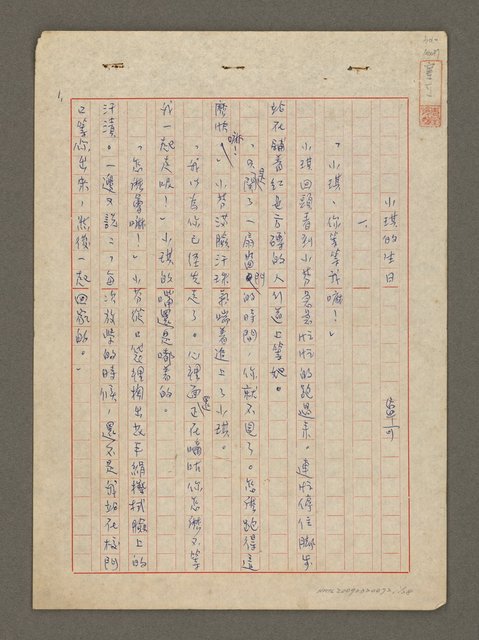 小琪的生日
單可
一、
「小琪，你等等我嘛！」
小琪回頭看到小芬急急忙忙的跑過來。連忙停住腳步
站在鋪着紅色方磚的人行道上等她。
「只是關了一扇窗門的時間，你就不見了。怎麼跑得這
麼快嘛！」小芬滿臉汗珠氣喘着追上了小琪。
「我以為你已經先走了。心裡面還正在嘀咕你怎麼不等
我一起走呢！」小琪的嘴還是嘟着的。
「怎麼會嘛！」小芬從口袋裡掏出教車絹機拭臉上的
汗漬。一邊又說：「每次放學的時候，還不是我站在校門
口等你出來，然後一起回家的。」
1.
單可
NMTL20090020072 1/58